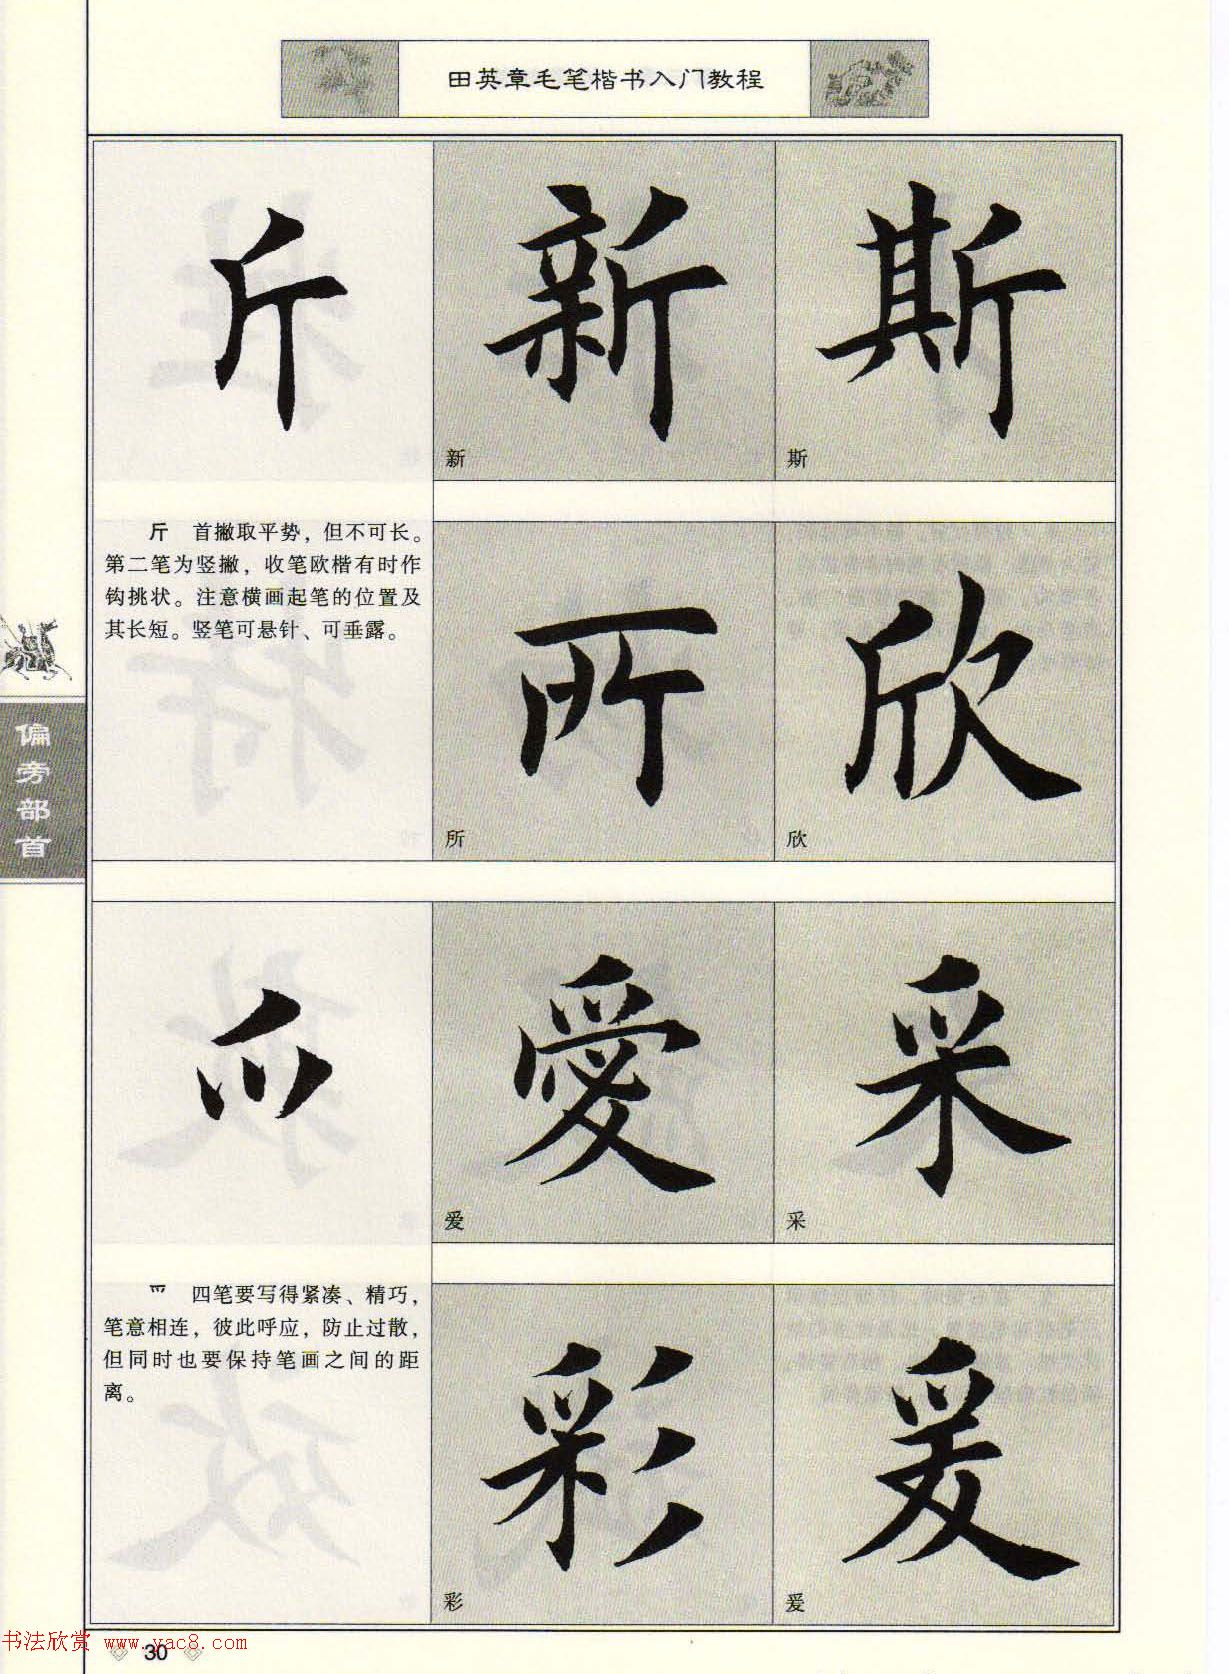 田英章毛笔楷书入门教程
斤 新 斯
新 斯
斤 首撇取平势，但不可长。
第二笔为竖撇，收笔欧楷有时作
钩挑状。注意横画起笔的位置及
其长短。竖笔可悬针、可垂露。
所 欣
所 欣
偏旁部首
爫 愛 采
爱 采
爫 四笔要写得紧凑、精巧，
笔意相连，彼此呼应，防止过散，
但同时也要保持笔画之间的距
离。
彩 爰
彩 爰
书法欣赏 www.yac8.com
30